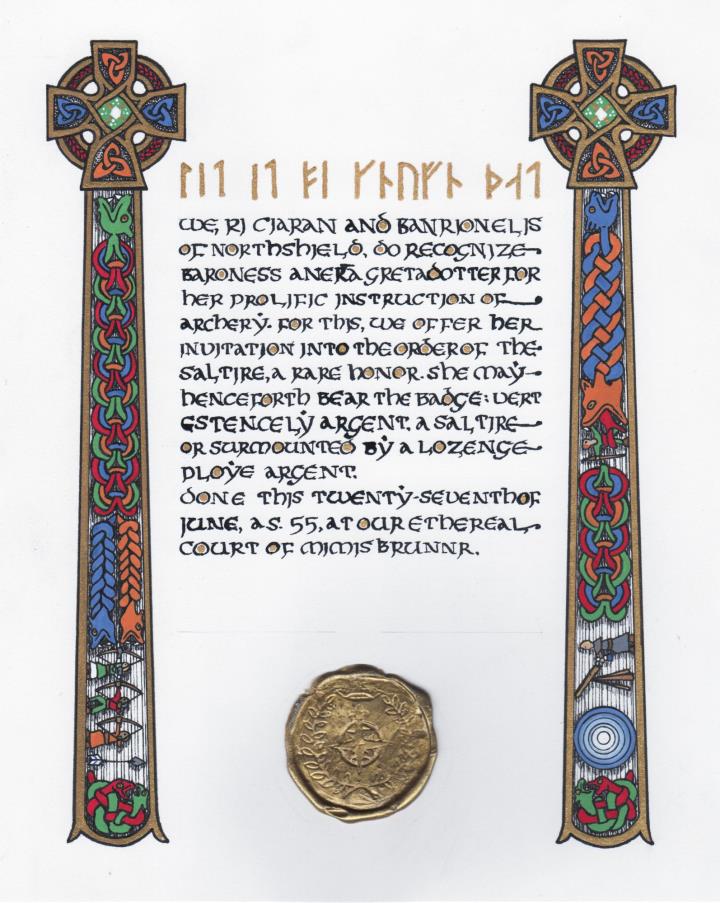 ᛚᛁᛐ ᛁᛐ ᚴᚿᚢᚠᚿ ᚦᛆᛐ
WE, RI CIARAN AND BANRION ELIS
OF NORTHSHIELD, DO RECOGNIZE
BARONESS ANEKA GRETADOTTER FOR
HER PROLIFIC INSTRUCTION OF
ARCHERY. FOR THIS, WE OFFER HER
INVITATION INTO THE ORDER OF THE
SALTIRE, A RARE HONOR. SHE MAY
HENCEFORTH BEAR THE BADGE: VERT
ESTENCELY ARGENT, A SALTIRE
OR SURMOUNTED BY A LOZENGE
PLOYE ARGENT.
DONE THIS TWENTY-SEVENTH OF
JUNE, A.S. 55, AT OUR ETHEREAL
COURT OF MIMISBRUNNR.